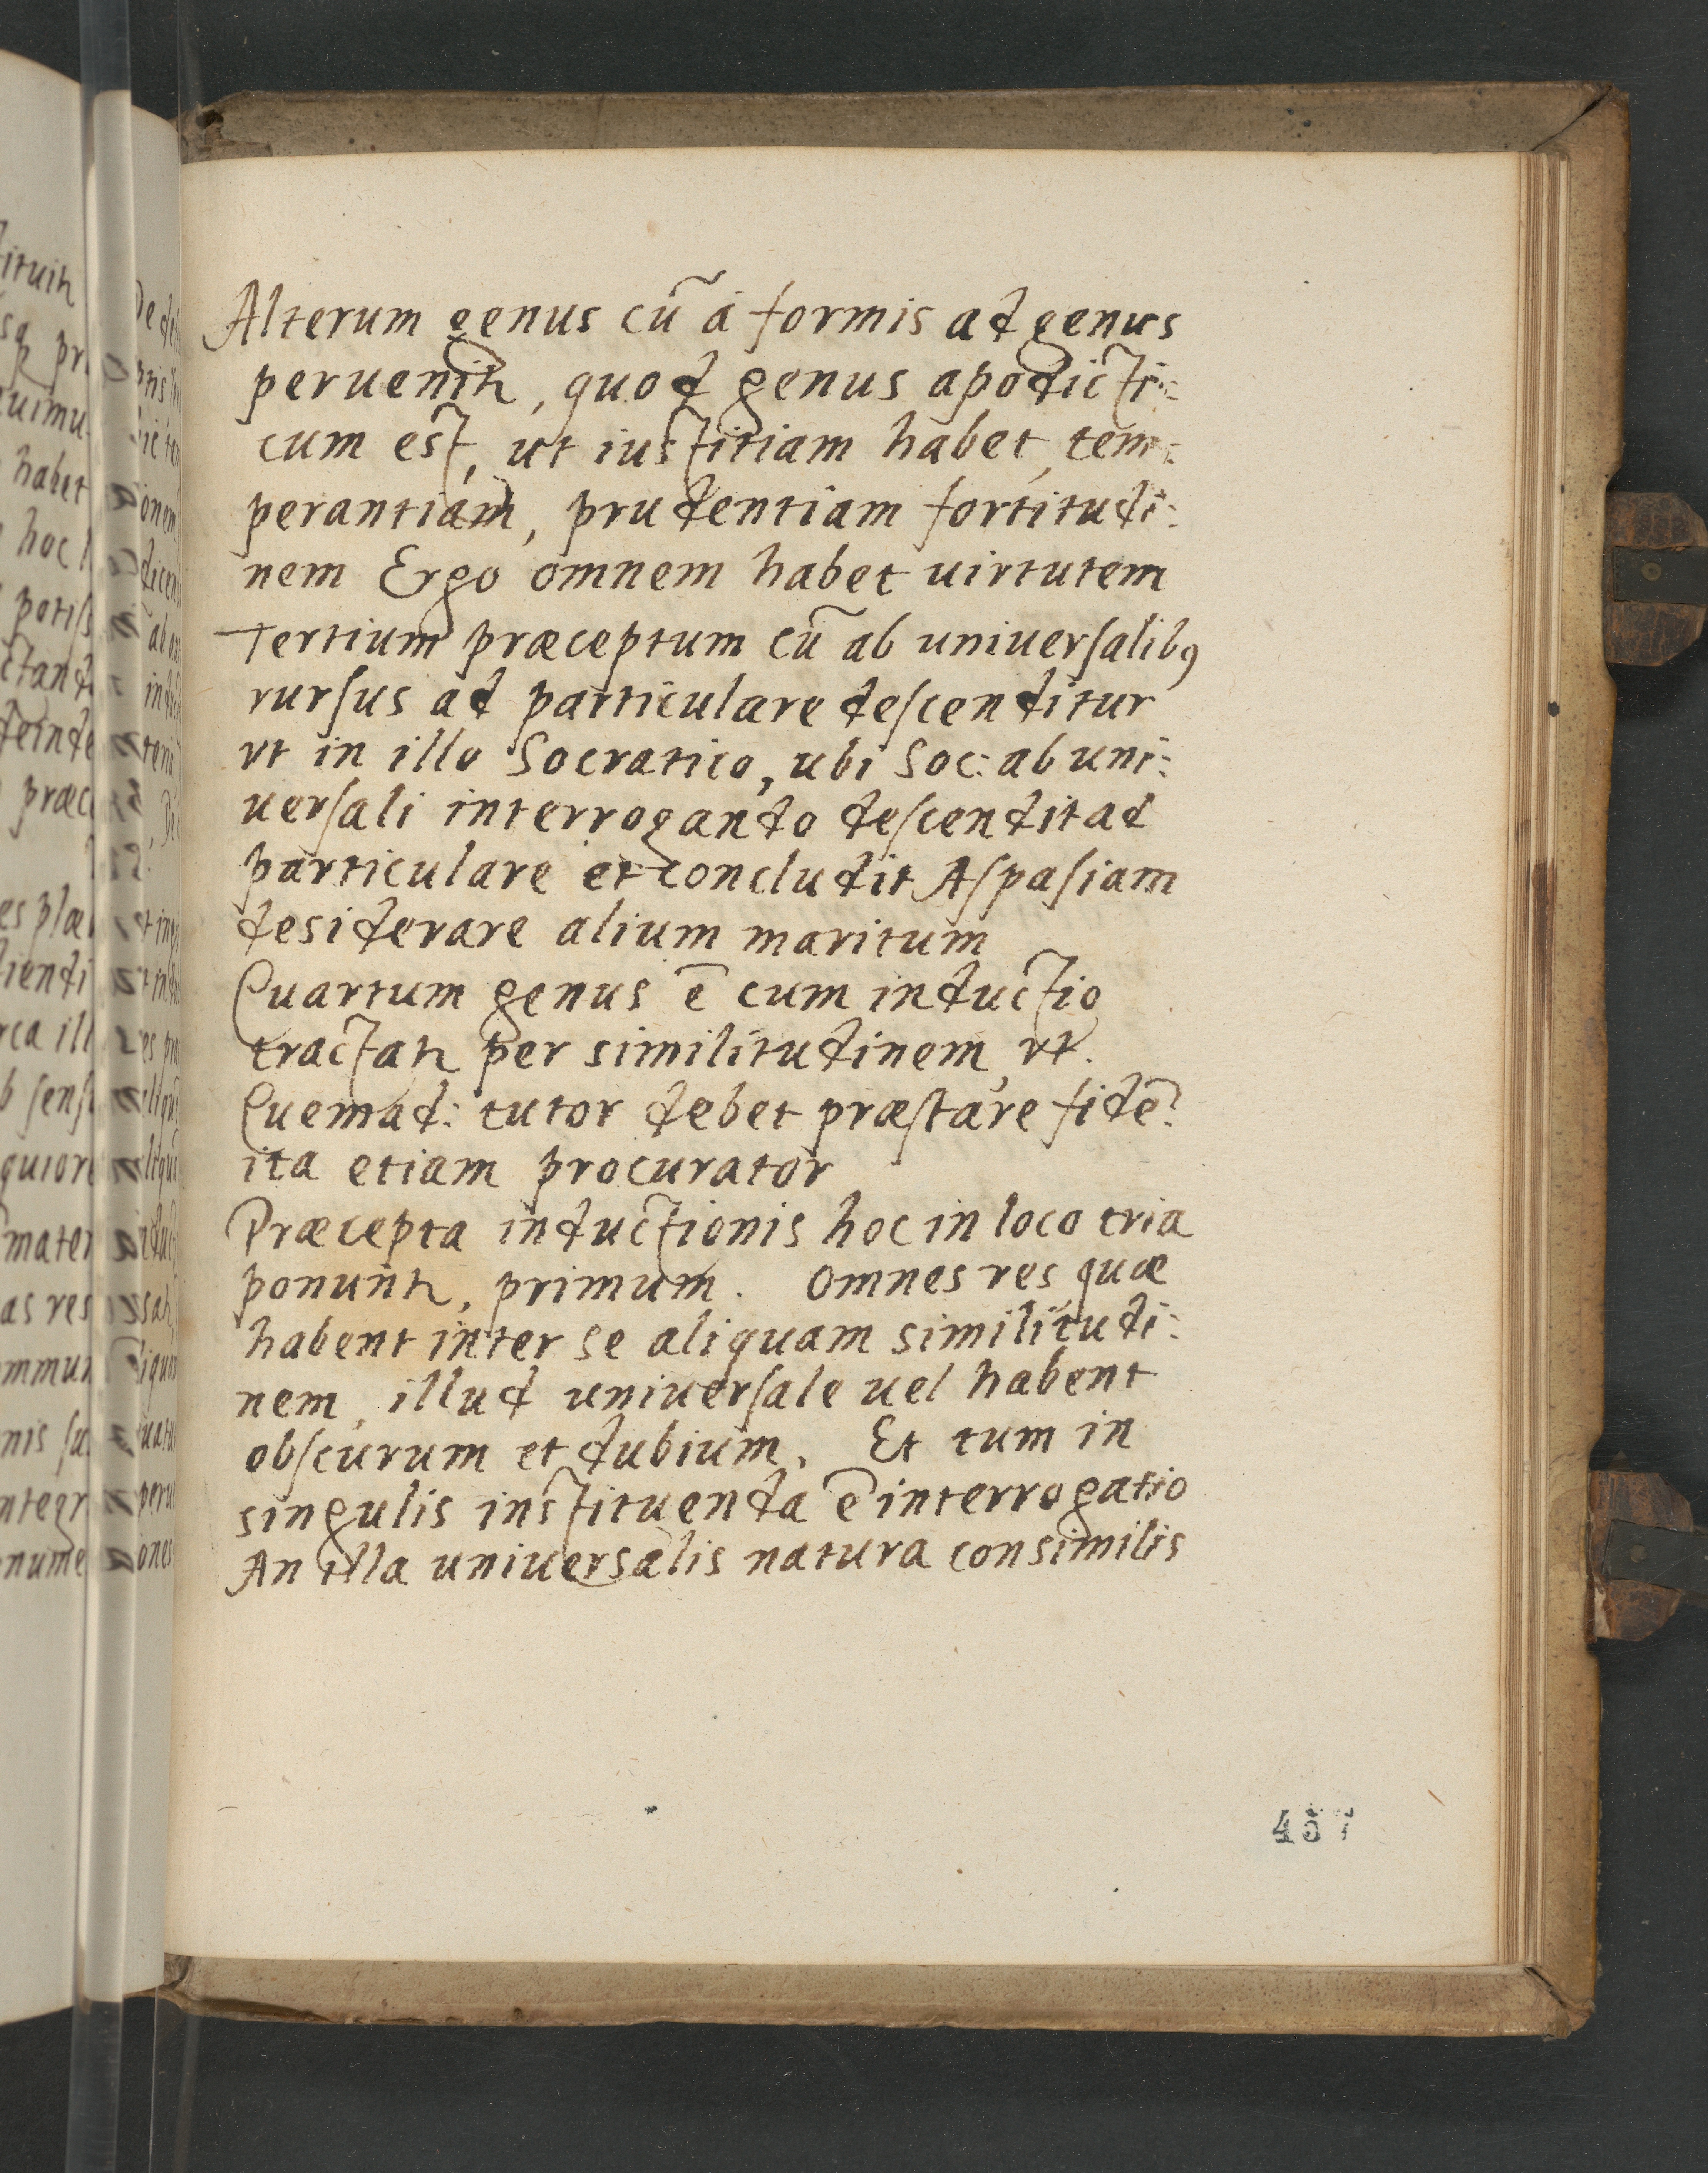 Alterum genus cũ á formis ad genus
peruenitr, quod genus apodicti:
cum est, ut iustitiam habet, tem:
perantiam, prudentiam fortitudi:
nem Ergo omnem habet uirtutem
Tertium præceptum cũ ab uniuerſalibꝰ
rurſus ad particulare deſcenditur
vt in illo Socratico, ubi Soc: ab uni:
uerſali interrogando deſcendit ad
particulare et concludit Aſpaſiam
desiderare alium maritum
Quartum genus ē cum inductio
tractatr per similitudinem, vt.
Quemad: tutor debet præſtare fidē?
ita etiam procurator
Præcepta inductionis hoc in loco tria
ponuntr, primum. Omnes res, quæ
habent inter se aliquam similitudi:
nem, illud uniuerſale uel habent
obſcurum et dubium. Et tum in
singulis instituenda ē interrogatio
An illa uniuersalis natura consimilis
457